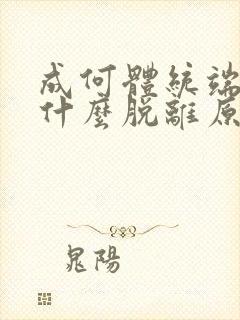 成何體統端
什麼脱離原
晁陽